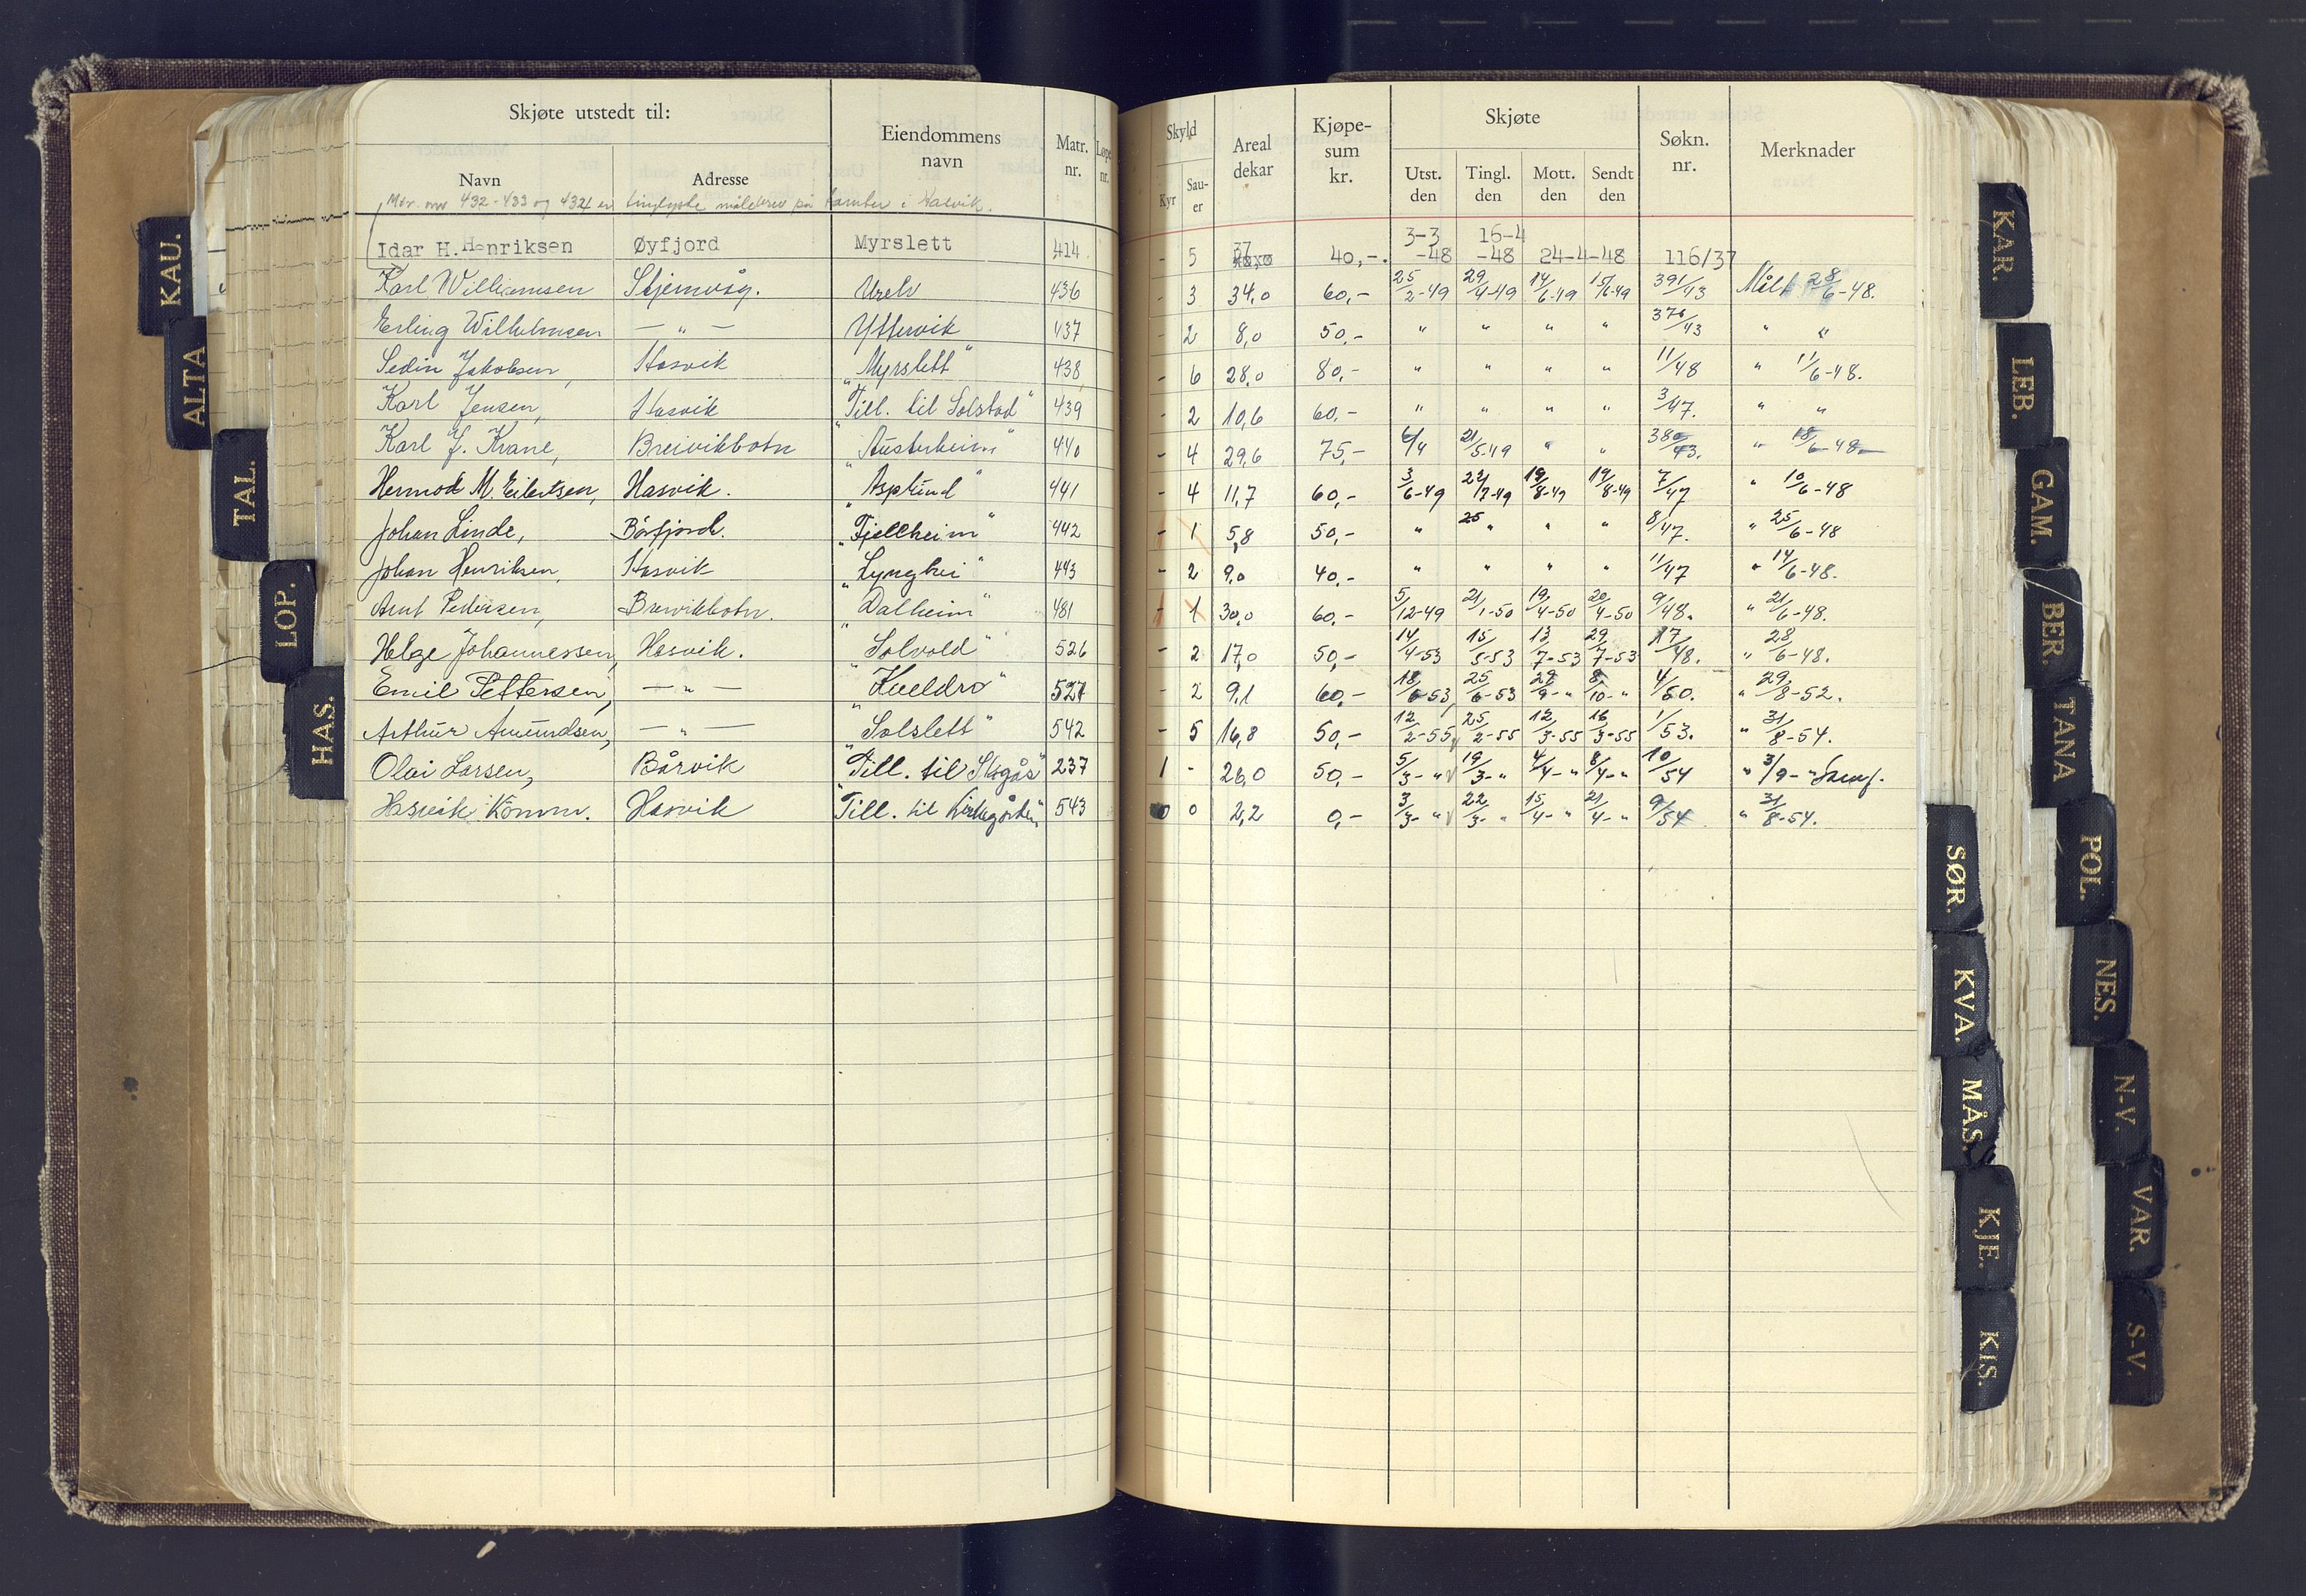 Skjøte utstedt til: Eiendommens navn Matr. nr. Skyld Areal dekar Kjøpe-sum kr. Skjøte Søkn. nr. Merknader
Navn Adresse Kyr Sau-er Utst. den Tingl. den Mott. den Sendt den
432-433 og 434 er tinglyste målebrev på i Hasvik.
Idar H. Henriksen Øyfjord Myrslett 414 - 5 37 40,-. 3-3-48 16-4-48 24-4-48 116/37
Karl Wilhelmsen Stjernvåg. Urelv 436 - 3 34,0 60,- 25/2-49 29/4-49 14/6-49 15/6-49 391/43 Målt 28/6-48.
Erling Wilhelmsen — " — Yttervik 437 - 2 8,0 50,- " " " " 376/43 " "
Sedin Jakobsen, Hasvik "Myrslett" 438 - 6 28,0 80,- " " " " 11/48 " 11/6-48.
Karl Jensen, Hasvik "Till. til Solstad" 439 - 2 10,6 60,- " " " " 3/47. " "
Karl J. Kvane, Breivikbotn "Austerheim" 440 - 4 29,6 75,- 6/4 21/5-49 " " 380/43. " 18/6-48
Hermod M. Eilertsen, Hasvik. "Asplund" 441 - 4 11,7 60,- 3/6-49 22/7-49 19/8-49 19/8-49 7/47 " 10/6-48
Johan Linde, Børfjord. "Fjellheim" 442 - 1 5,8 50,- " 25 " " " 8/47. " 25/6-48
Johan Henriksen, Hasvik "Lynghei" 443 - 2 9,0 40,- " " " " 11/47 " 14/6-48.
Arnt Pedersen, Breivikbotn. "Dalheim" 481 1 1 30,0 60,- 5/12-49 21/1-50 19/4-50 20/4-50 9/48. " 21/6-48.
Helge Johannessen, Hasvik. "Solvold" 526 - 2 17,0 50,- 14/4-53 15/5-53 13/7-53 29/7-53 17/48. " 28/6-48.
Emil Pettersen, — " — "Kveldro" 527 - 2 9,1 60,- 18/6-53 25/6-53 29/9-" 8/10-" 4/50. " 29/8-52.
Arthur Amundsen, — " — "Solslett" 542 - 5 16,8 50,- 12/2-55 25/2-55 12/3-55 16/3-55 1/53. " 31/8-54.
Olai Larsen, Bårvik "Till. til Skogås" 237 1 - 26,0 50,- 5/3-" 19/3-" 4/4-" 8/4-" 10/54 " 3/9-"
Hasvik Komm. Hasvik "Till. til kirkegården" 543 0 0 2,2 0,- 3/3-" 22/3-" 15/4-" 21/4-" 9/54 " 31/8-54.
KAU.
ALTA
TAL.
LOP.
HAS.
KAR.
LEB.
GAM.
BER.
TANA
POL.
NES.
N-V.
VAR.
S-V.
SØR.
KVA.
MÅS.
KJE.
KIS.